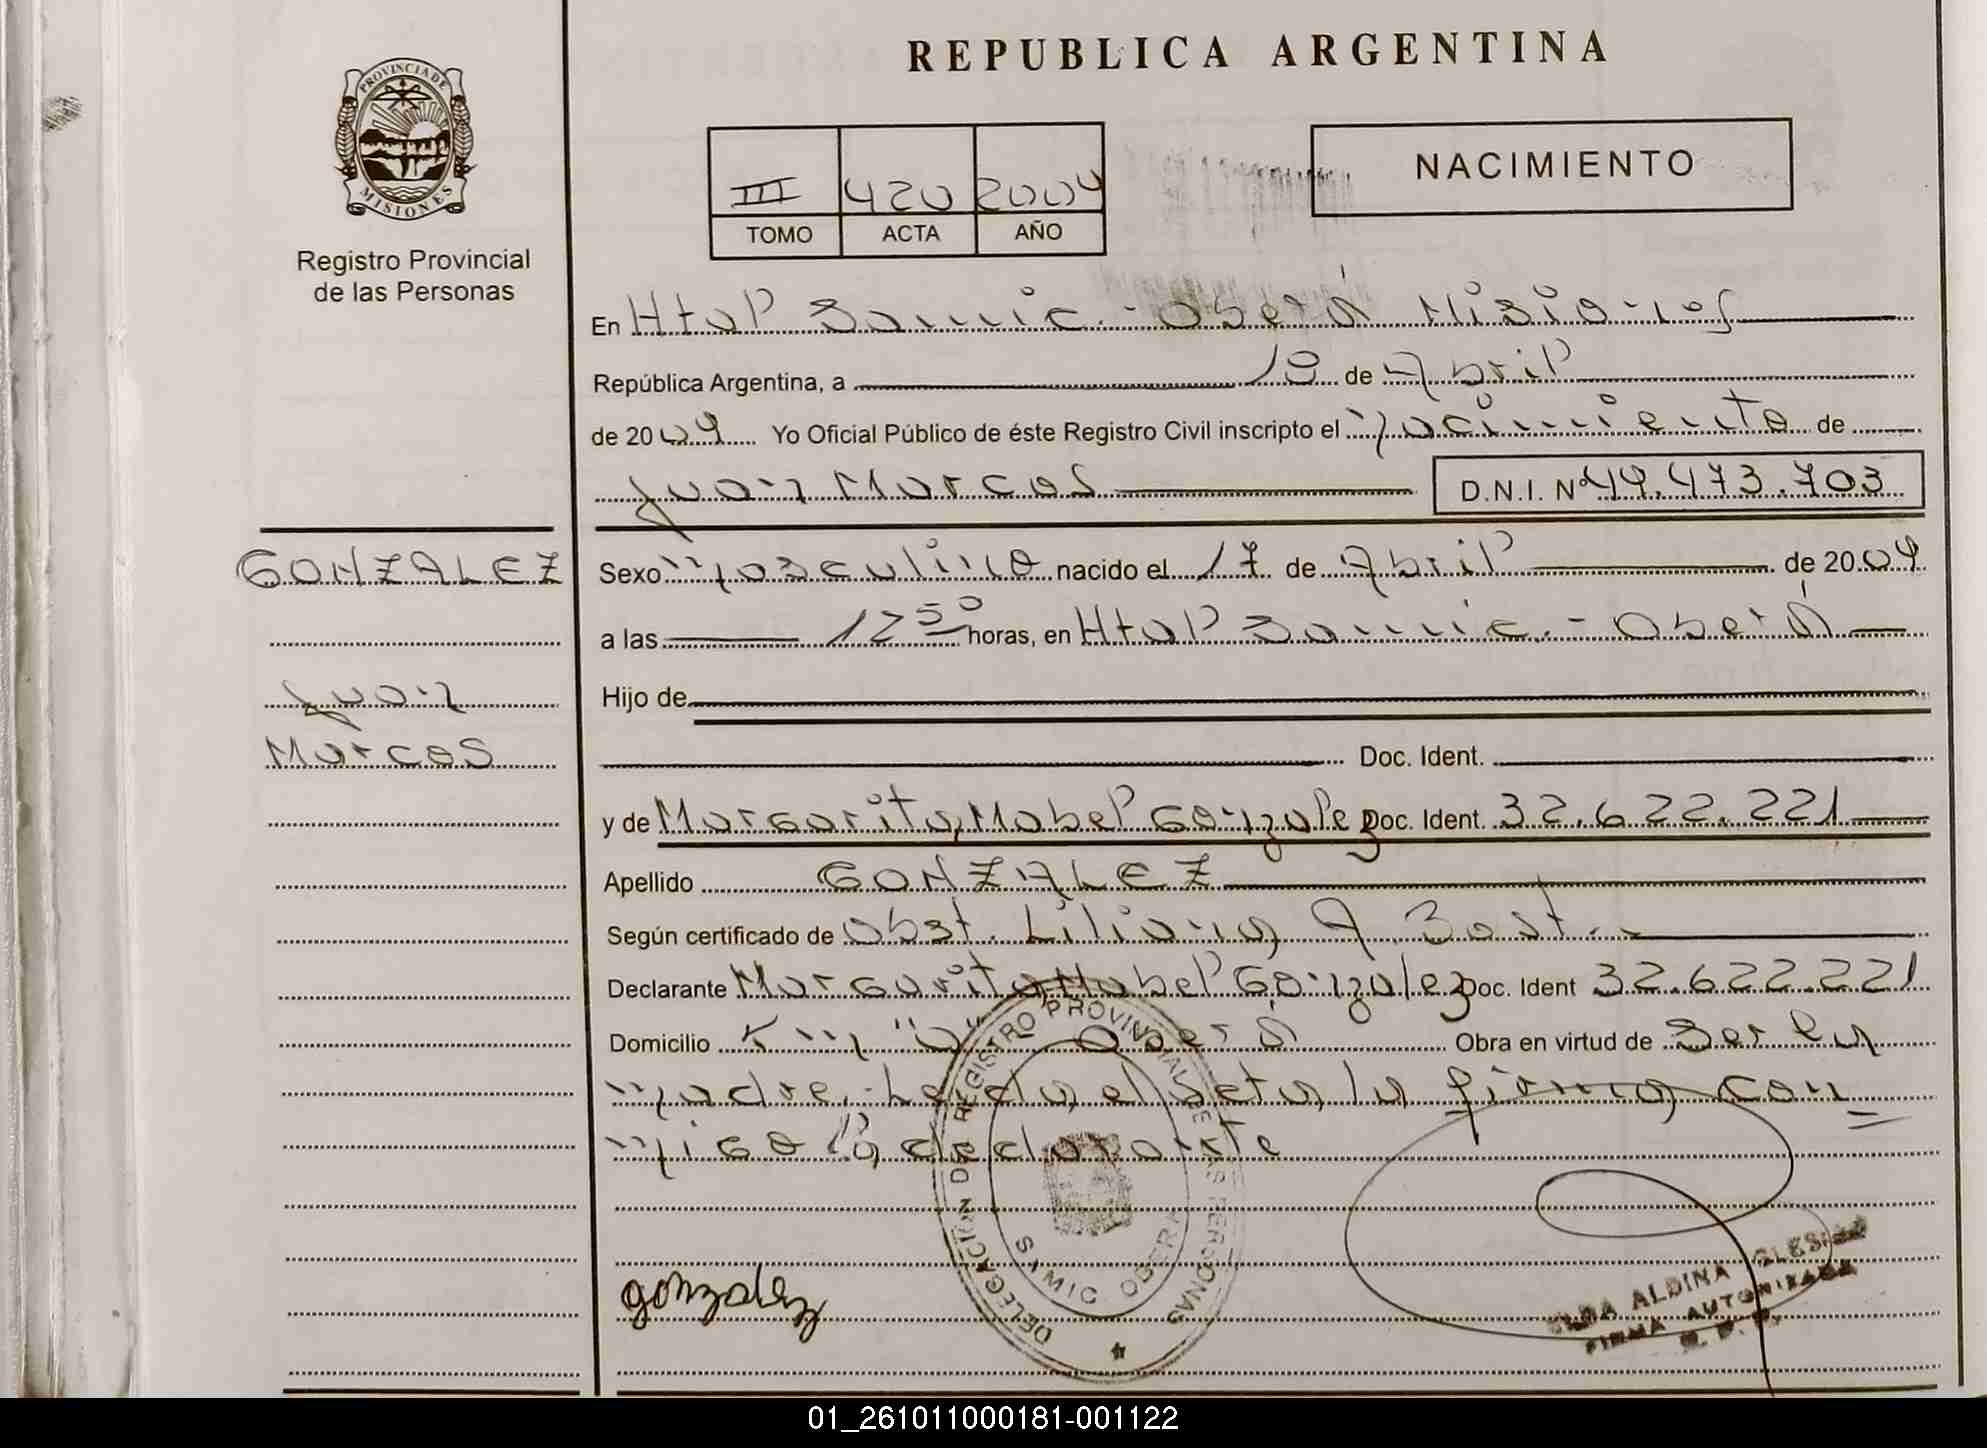 REPUBLICA ARGENTINA
PROVINCIA DE MISIONES
Registro Provincial
de las Personas
III 420 2004
TOMO ACTA AÑO
NACIMIENTO
En Htal Samic - Oberá Misiones
República Argentina, a 18 de Abril
de 2004 Yo Oficial Público de éste Registro Civil inscripto el nacimiento de
Juan Marcos D.N.I. Nº 44.473.703
GONZALEZ
Juan
Marcos
Sexo masculino nacido el 17 de Abril de 2004
a las 12 50 horas, en Htal Samic. - Oberá
Hijo de
Doc. Ident.
y de Margarita Mabel Gonzalez Doc. Ident. 32.622.221
Apellido GONZALEZ
Según certificado de Obst. Liliana A.
Declarante Margarita Mabel Gonzalez Doc. Ident 32.622.221
Domicilio Km Oberá Obra en virtud de Ser la
madre. Leida el acta, la firma con
migo la declarante
DELEGACIÓN DEL REGISTRO PROVINCIAL DE LAS PERSONAS
SAMIC OBERA
gonzalez
ALDINA
FIRMA AUTORIZADA
01_261011000181-001122